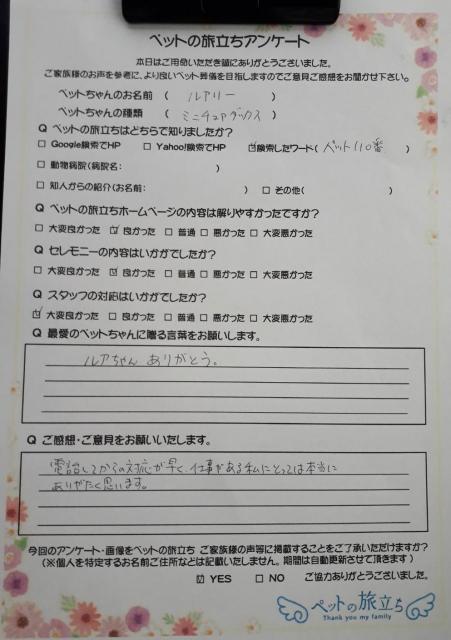 ペットの旅立ちアンケート
本日はご用命いただき誠にありがとうございました。
ご家族様のお声を参考に、より良いペット葬儀を目指しますのでご意見ご感想をお聞かせ下さい。
ペットちゃんのお名前 ( ルアリー )
ペットちゃんの種類 ( ミニチュアダックス )
Q ペットの旅立ちはどちらで知りましたか?
□ Google検索でHP □ Yahoo!検索でHP ☑検索したワード( ペット110番 )
□ 動物病院(病院名: )
□ 知人からの紹介(お名前: ) □ その他( )
Q ペットの旅立ちホームページの内容は解りやすかったですか?
□ 大変良かった ☑ 良かった □ 普通 □ 悪かった □ 大変悪かった
Q セレモニーの内容はいかがでしたか?
□ 大変良かった ☑ 良かった □ 普通 □ 悪かった □ 大変悪かった
Q スタッフの対応はいかがでしたか?
☑ 大変良かった □ 良かった □ 普通 □ 悪かった □ 大変悪かった
Q 最愛のペットちゃんに贈る言葉をお願いします。
ルアちゃん ありがとう。
Q ご感想・ご意見をお願いいたします。
電話してからの対応が早く、仕事がある私にとっては本当に
ありがたく思います。
今回のアンケート・画像をペットの旅立ち ご家族様の声等に掲載することをご了承いただけますか?
(※個人を特定するお名前ご住所などは記載いたしません。期間は自動更新させて頂きます)
☑ YES □ NO ご協力ありがとうございました。
ペットの旅立ち
Thank you my family